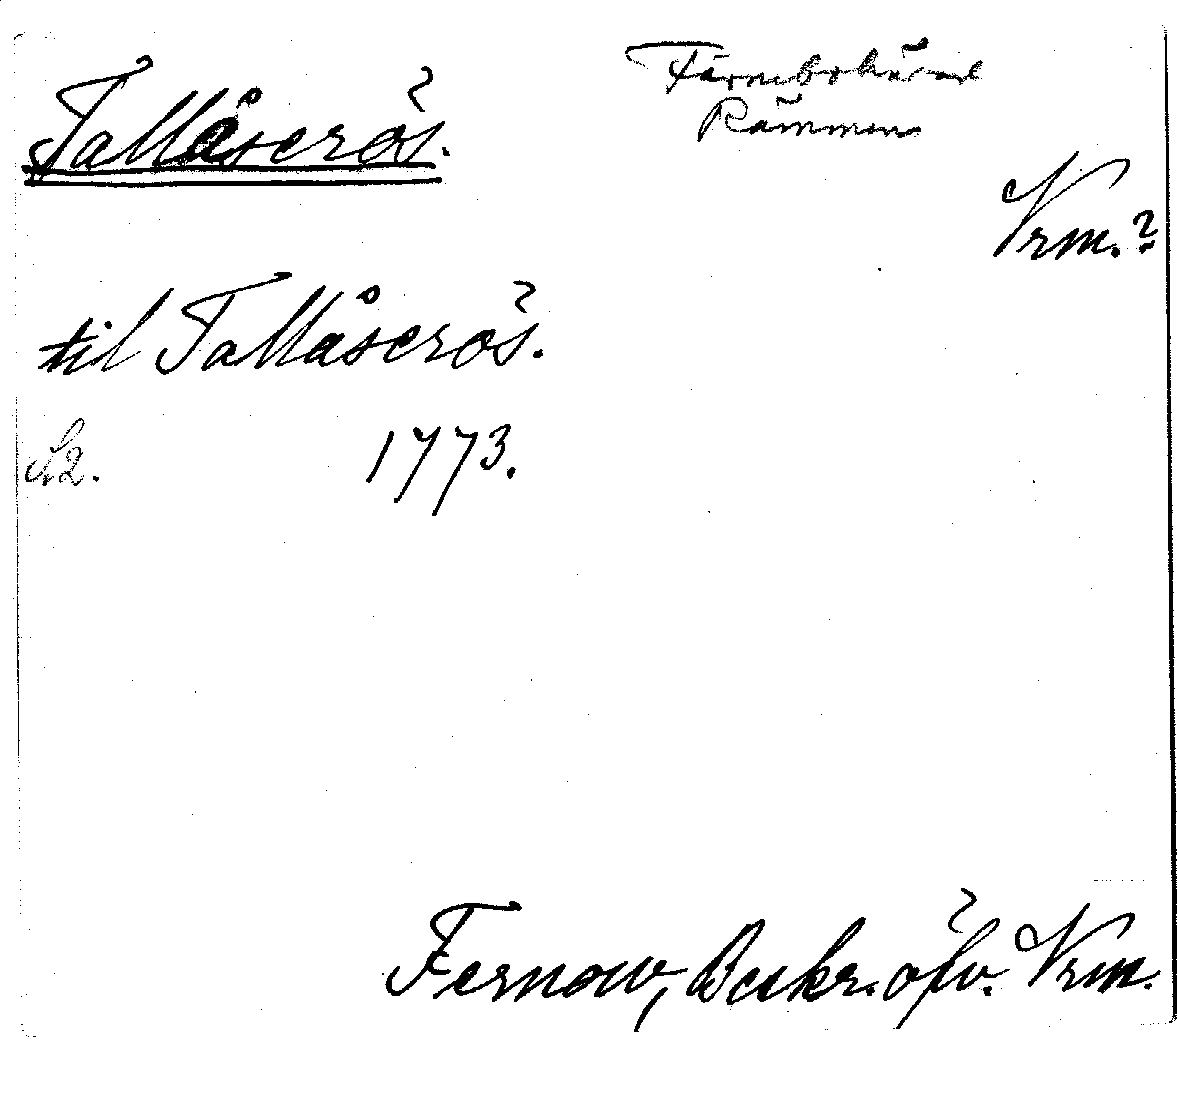 Tallåserös.
Färnebo härad
Rämmen
Vrm.?
til Tallåserös.
S. 2. 1773.
Fernow, Beskr. öfv. Vrm.